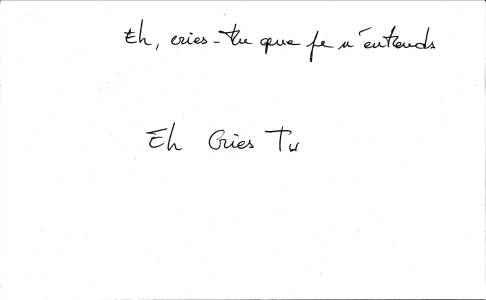 Eh, cries-tu que je n'entends
Eh Cries Tu